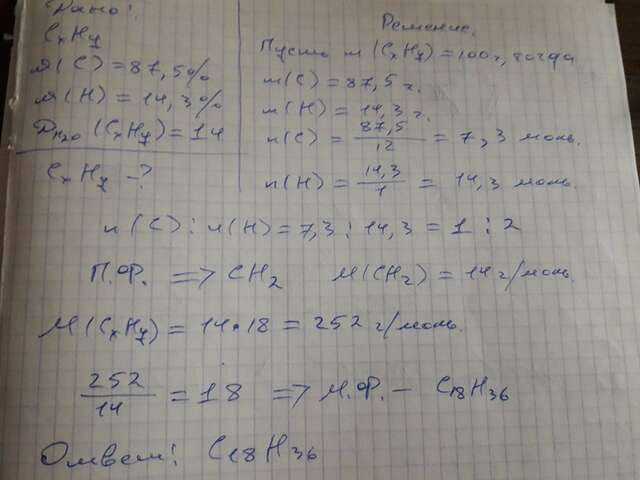 Дано:
CxHy
ω(C) = 87,5%
ω(H) = 14,3%
DH2O (CxHy) = 14
CxHy - ?
Решение.
Пусть m (CxHy) = 100 г, тогда
m(C) = 87,5 г.
m(H) = 14,3 г.
n(C) = 87,5/12 = 7,3 моль.
n(H) = 14,3/1 = 14,3 моль.
n(C) : n(H) = 7,3 : 14,3 = 1 : 2
П.Ф. => CH2 M(CH2) = 14 г/моль.
M(CxHy) = 14 * 18 = 252 г/моль.
252/14 = 18 => М.Ф. - C18H36
Ответ: C18H36